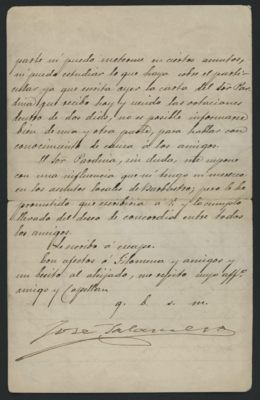 parte ni puedo meterme en ciertos asuntos,
ni puedo estudiar lo que haya sobre el parti-
cular, ya que escrita ayer la carta del Sor Par-
dina, que recibo hoy y siendo las votaciones
dentro de dos dias, no es posible informarse
bien de una y otra parte, para hablar con
conocimiento de causa á los amigos.
El Sor Pardina, sin duda, me supone
con una influencia que ni tengo ni merezco
en los asuntos locales de Barbastro, pero le he
prometido que escribiria á V. y lo cumplo
llevado del deseo de concordia entre todos
los amigos.
Le escribo á escape.
Con afectos á Filomena y amigos y
un besito al ahijado, me repito suyo affmo
amigo y Capellan
q. b. s. m.
José Salamero